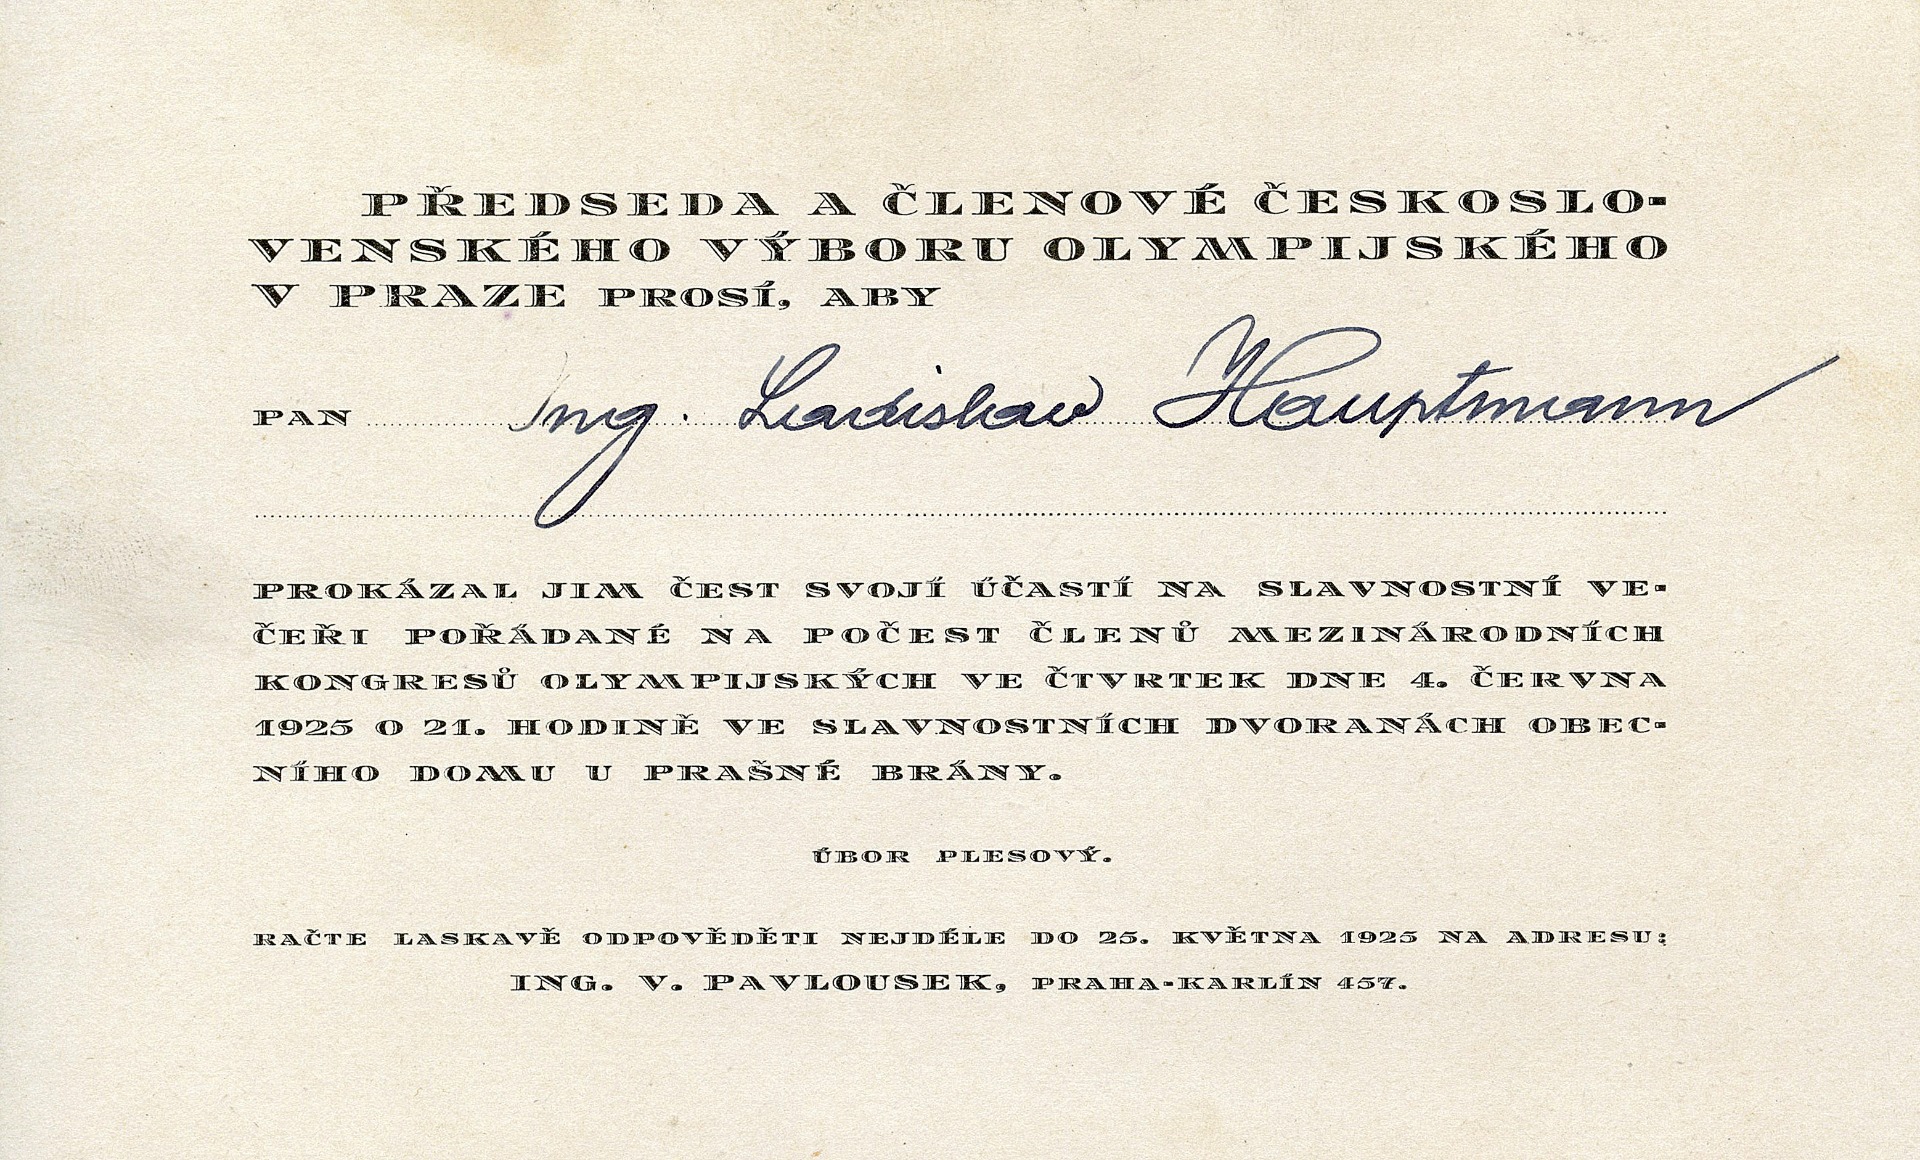 PŘEDSEDA A ČLENOVÉ ČESKOSLO-
VENSKÉHO VÝBORU OLYMPIJSKÉHO
V PRAZE PROSÍ, ABY
PAN Ing. Ladislav Hauptmann
PROKÁZAL JIM ČEST SVOJÍ ÚČASTÍ NA SLAVNOSTNÍ VE-
ČEŘI POŘÁDANÉ NA POČEST ČLENŮ MEZINÁRODNÍCH
KONGRESŮ OLYMPIJSKÝCH VE ČTVRTEK DNE 4. ČERVNA
1925 O 21. HODINĚ VE SLAVNOSTNÍCH DVORANÁCH OBEC-
NÍHO DOMU U PRAŠNÉ BRÁNY.
ÚBOR PLESOVÝ.
RAČTE LASKAVĚ ODPOVĚDĚTI NEJDÉLE DO 25. KVĚTNA 1925 NA ADRESU:
ING. V. PAVLOUSEK, PRAHA-KARLÍN 457.